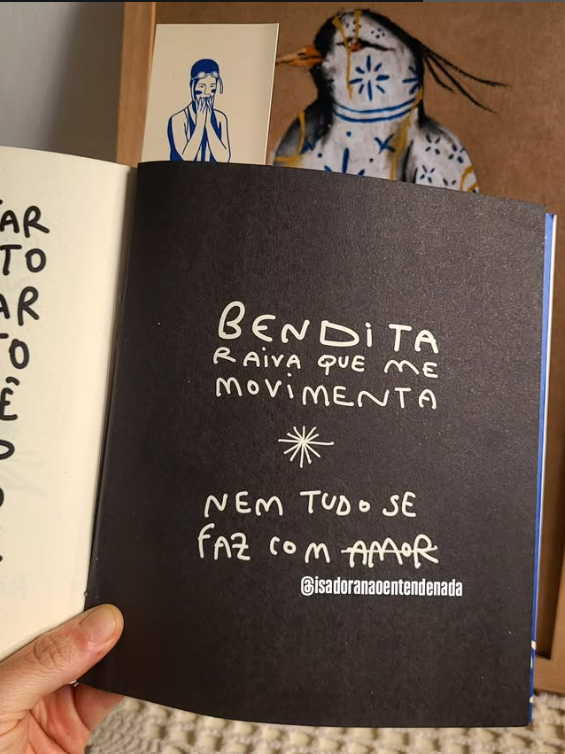 AR
TO
AR
TO
Ê
BENDITA
RAIVA QUE ME
MOVIMENTA
NEM TUDO SE
FAZ COM AMOR
@isadoranaoentendenada